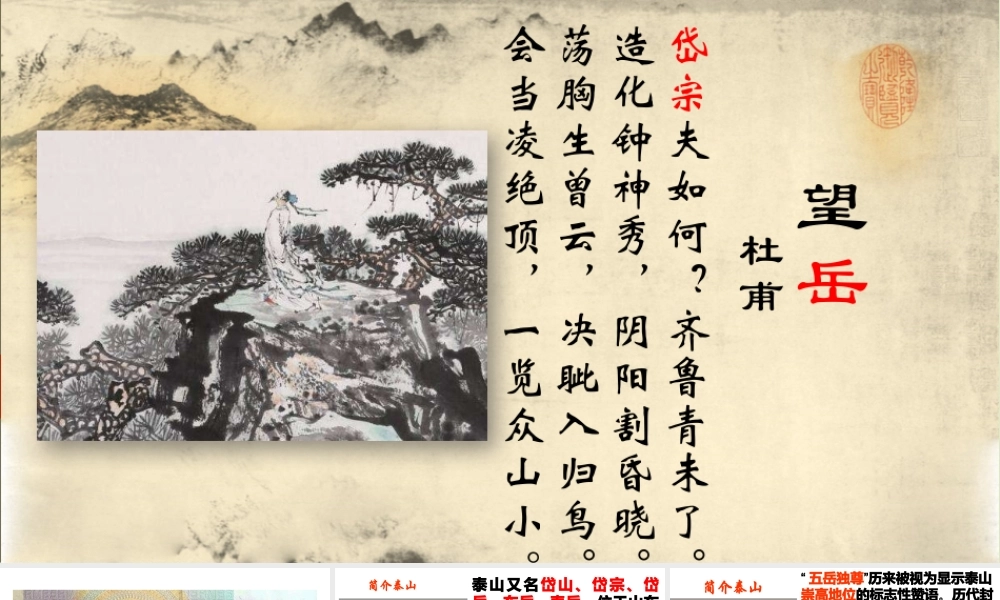 望岳
杜甫
岱宗夫如何？齐鲁青未了。
造化钟神秀，阴阳割昏晓。
荡胸生曾云，决眦入归鸟。
会当凌绝顶，一览众山小。
简介泰山
泰山又名岱山、岱宗、岱
简介泰山
“五岳独尊”历来被视为显示泰山
崇高地位的标志性赞语。历代封